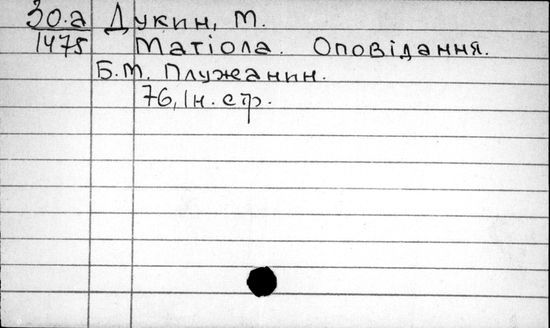 30.а Дукин, М.
1475 Матіола. Оповідання.
Б.М. Плужанин.
76, Iн. стр.